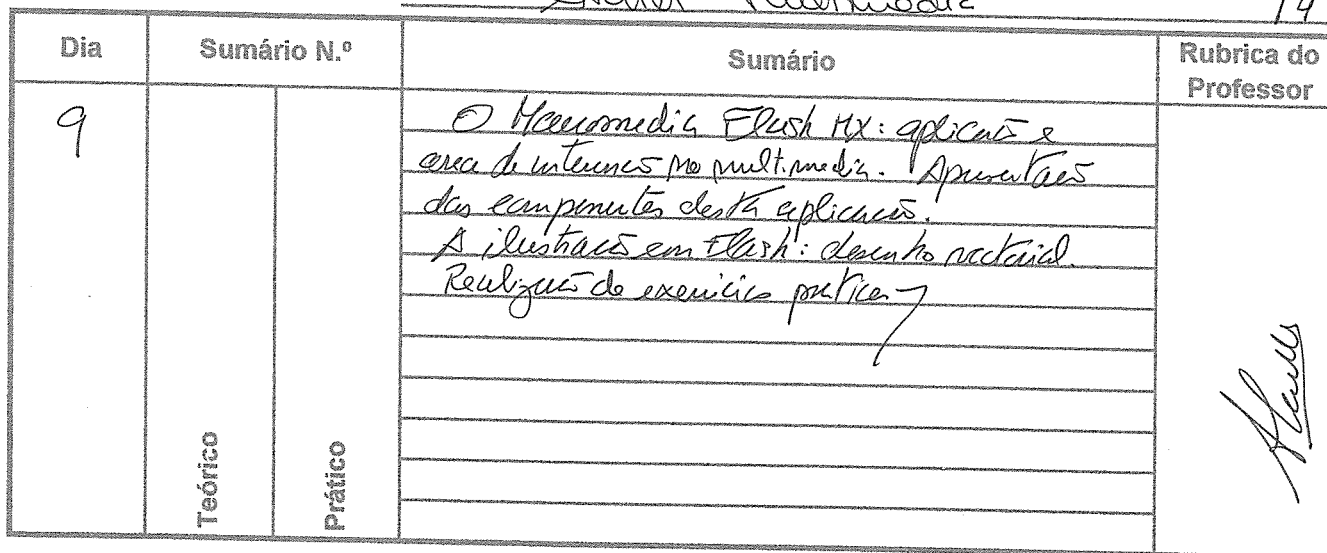 Multimedia 14
Dia Sumário N.º Sumário Rubrica do Professor
9
O Macromedia Flash MX: aplicação e
area de intervenção no multimedia. Apresentação
das componentes desta aplicação.
A ilustração em Flash: desenho vectorial.
Realização de exercícios práticos
Teórico Prático